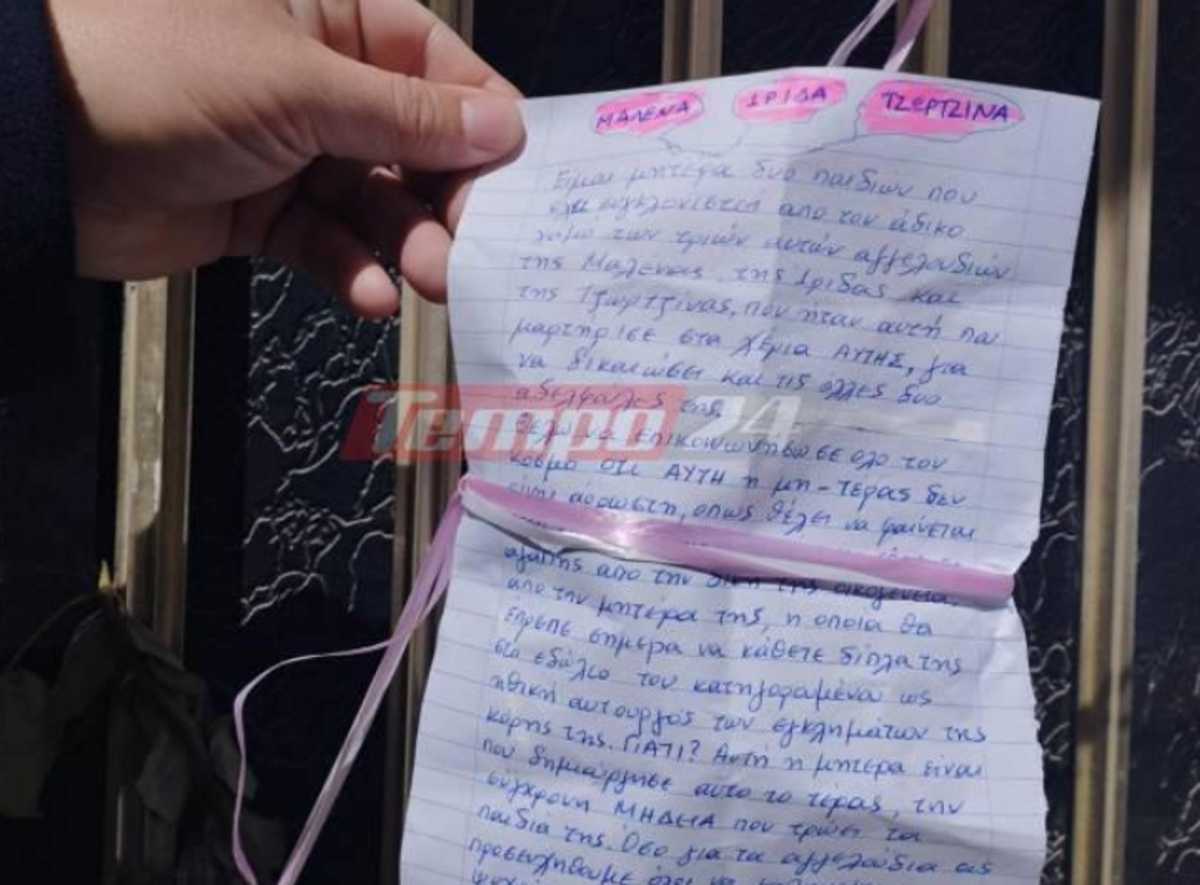 ΜΑΛΕΝΑ ΙΡΙΔΑ ΤΖΕΡΤΖΙΝΑ
Ειμαι μητερα δυο παιδιων που
απο τον άδικο
χαμο των τριών αυτών αγγελουδιών
της Μαλενας, της Ιριδας και
της Τζωρτζινας, που ήταν αυτή που
μαρτηρισε στα χέρια ΑΥΤΗΣ, για
να δικαιώσει και τις άλλες δυο
αδελφούλες της.
Θελω να επικοινωνήσω σε ολο τον
κοσμο οτι ΑΥΤΗ η μη-τέρας δεν
είναι άρρωστη, οπως θέλει να φαίνεται
αγάπης απο την δικη της οικογενεια.
απο την μητερα της, η οποια θα
επρεπε σημερα να κάθετε δίπλα της
στο εδώλιο του κατηγοραμενα ως
ηθικη αυτουργός των εγκλημάτων της
κόρης της. ΓΙΑΤΙ? Αυτή η μητερα είναι
που δημιούργησε αυτο το τέρας, την
σύγχρονη ΜΗΔΕΙΑ που τρώει τα
παιδιά της. Όσο για τα αγγελούδια ας
προσευχηθουμε ολοι να
Tempo24